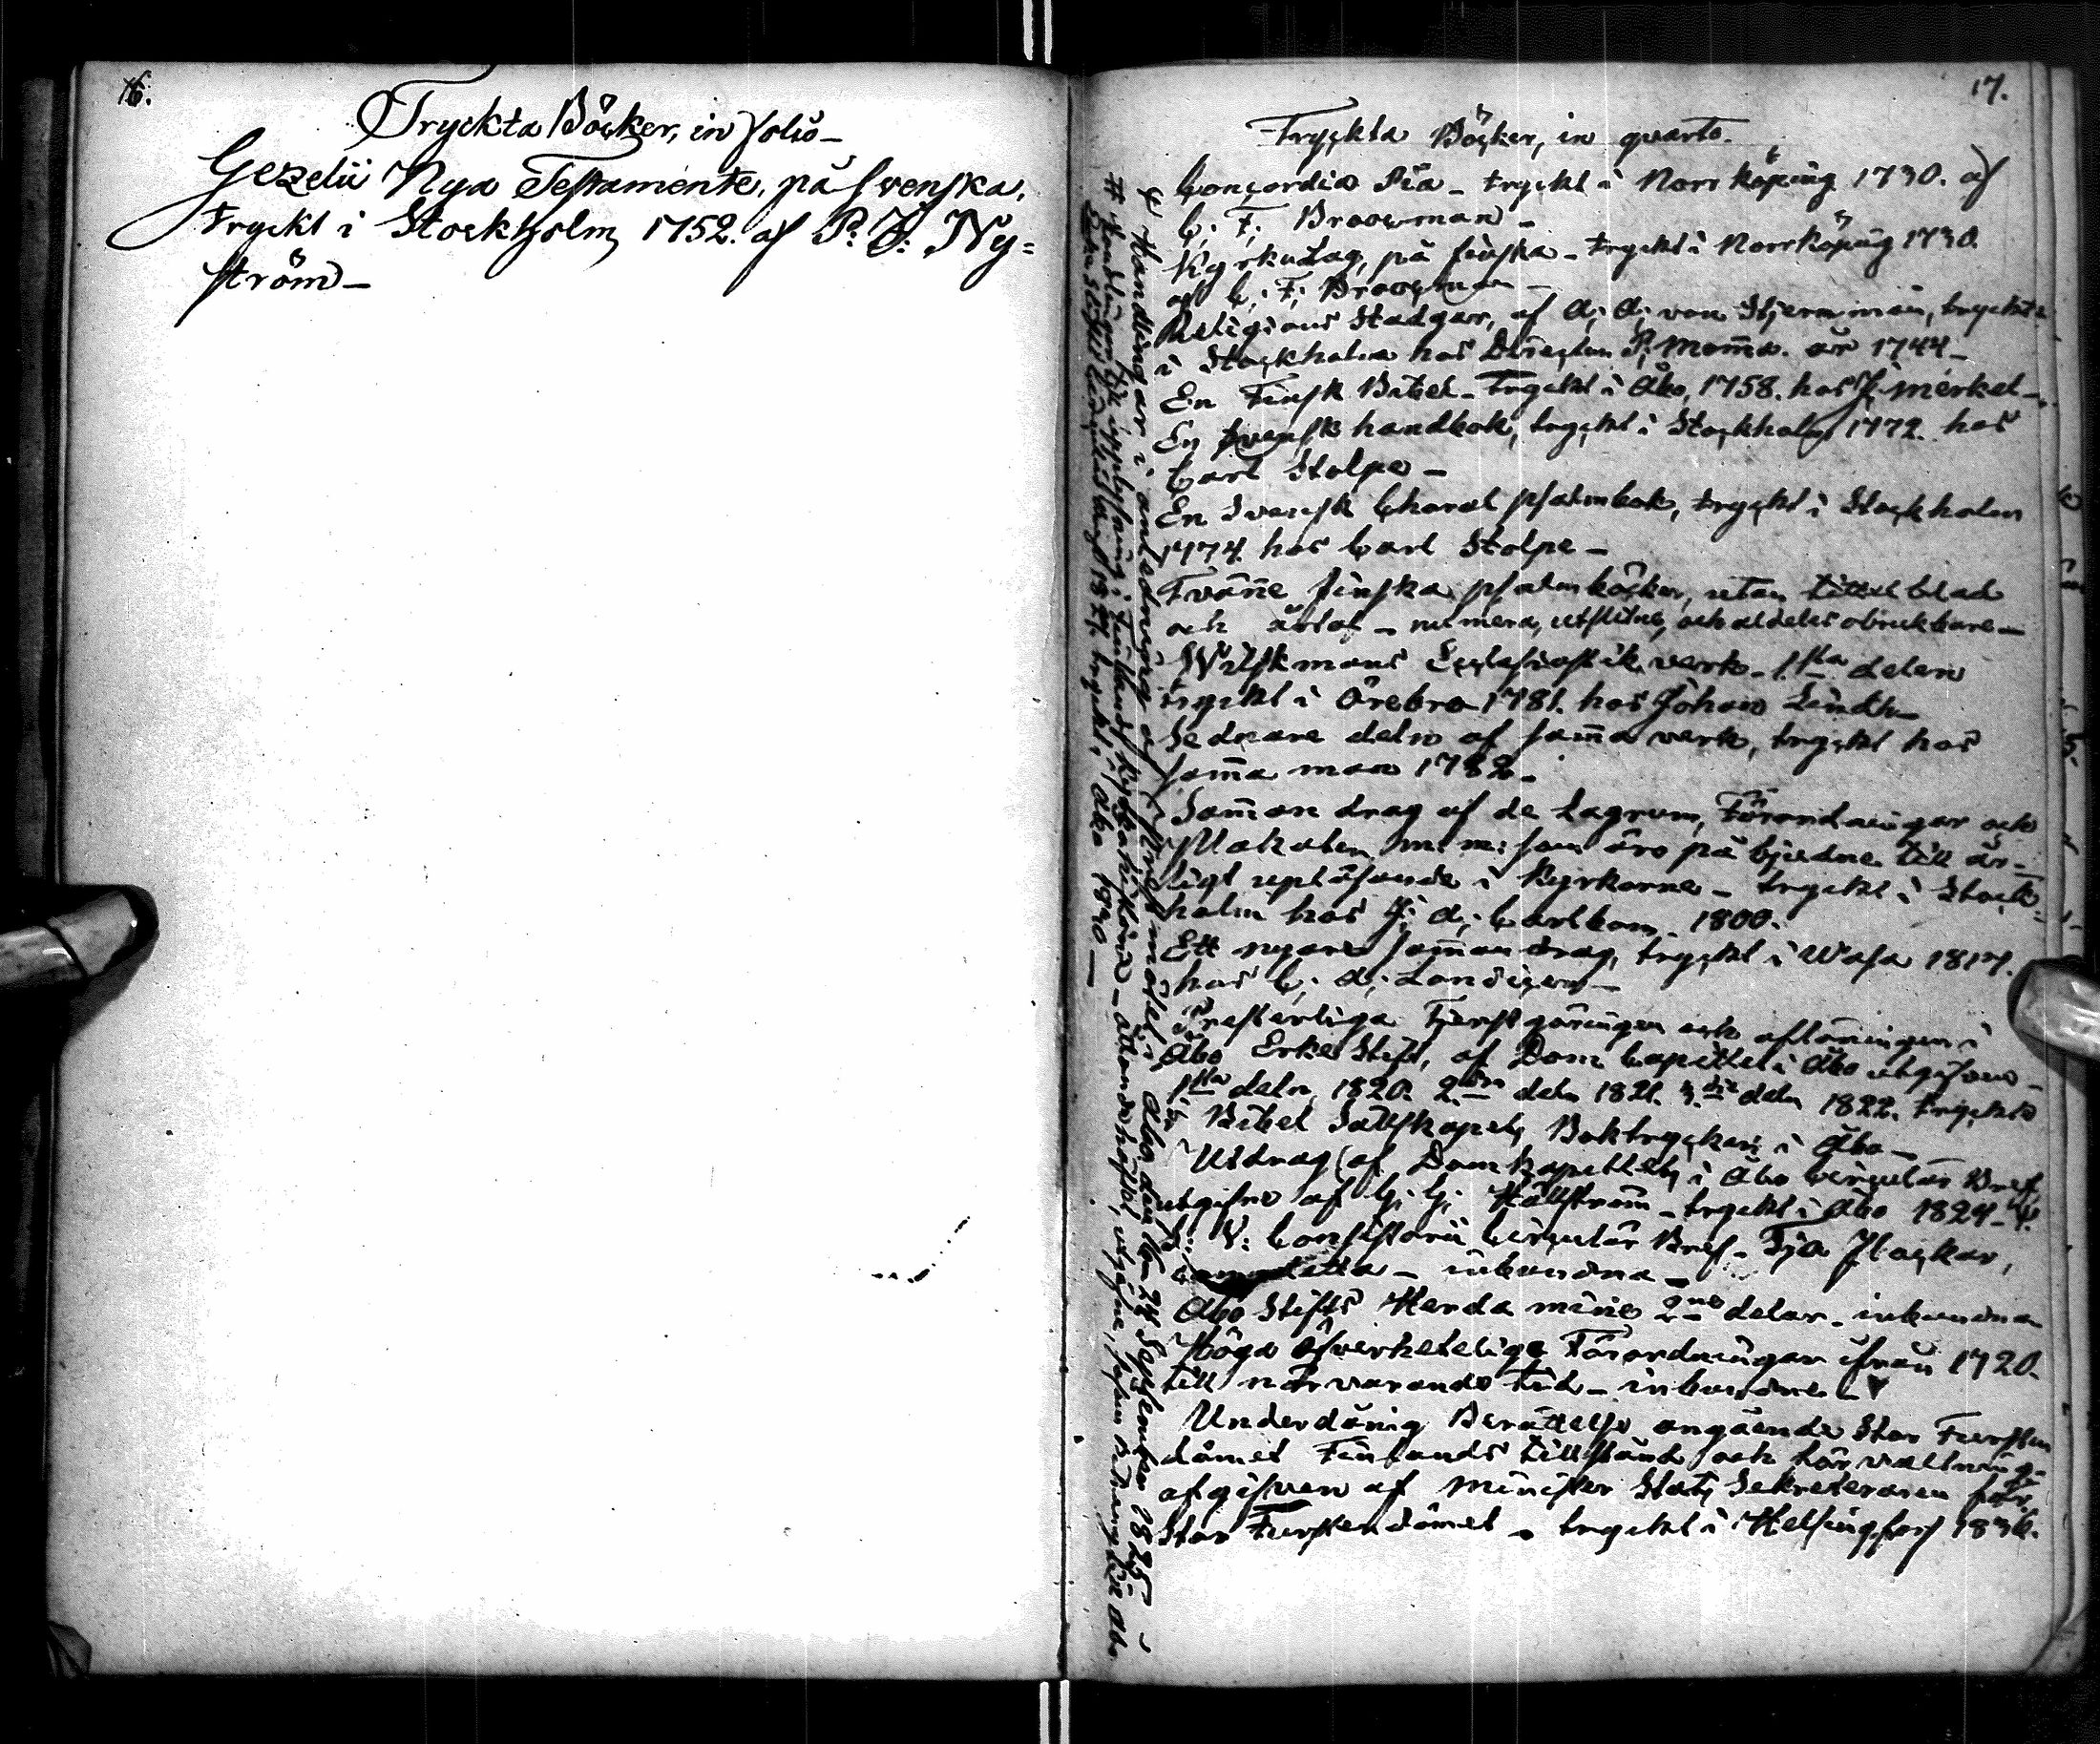 16.
Tryckta Böcker, in folio_
Gezelii Nya Testamente, på Svenska,
tryckt i Stockholm, 1752. af P: J: Ny=
ström_
17.
Tryckta Böcker, in qvarto.
Concordia Pia _ tryckt i Norrköping 1730. af
C. F. Broocman _
KyrkoLag, på finska _ tryckt i Norrköping 1730.
af C; F; Broocman _
Religions Stadgar, af A; A; von Stjernman, tryckte
i Stockholm hos Directeur P; Momma. år 1744 _
En Finsk Bibel _ Tryckt i Åbo, 1758. hos J; Merkel _
En Svensk handbok, tryckt i Stockholm 1772. hos
Carl Stolpe _
En Svensk Choral psalmbok, tryckt i Stockholm
1774. hos Carl Stolpe _
Tvänne finska psalmböcker, utan tittelblad
och årtal _ numera, utslitne, och aldeles obrukbare _
Wilskmans Ecclesiastik verk _ 1sta delen
tryckt i Örebro 1781. hos Johan Lindh _
Sednare deln af samma verk, tryckt hos
samma man 1782 _
Samman drag af de Lagrum, Förordningar och
Plakater m: m: som äro på bjudne till år_
ligt uppläsande i Kyrkorna _ tryckt i Stock_
holm hos J; A; Carlbom. 1800.
Ett nyare samman drag, tryckt i Wasa 1817.
hos C; A; Londicer _
Presterliga Tjenstgöringen och aflöningen i
Åbo Erke Stift, af Dom Capitlet i Åbo utgifven _
1sta deln, 1820. 2dra deln 1821. 3die deln 1822. tryckta
i Bibel Sällskapets Boktryckeri i Åbo _
Utdrag af Domkapitlets i Åbo circulär Bref,
utgifne af G; G; Hällström _ tryckt i Åbo 1824 _
V: Consistorii Circulär Bref _ Tja flockar,
_ inbundna _
Åbo Stifts Herda minne 2ne delar _ inbundna
Höga Öfverhetelige Förordningar ifrån 1720.
till närvarande tid _ inbundne _
Underdånig Berättelse angående Stor Fursten
dömet Finlands tillstånd och förvaltning_
afgifven af Minister Stats Sekreteraren för
Stor Furstendömet _ tryckt i Helsingfors 1836.
Handlingar i anledning af Prestmötet i Åbo den 24 September 1825 _
# Handlingar till upplysning i Finlands kyrkohistoria _ utgifne
tryckt i Åbo 1830 _